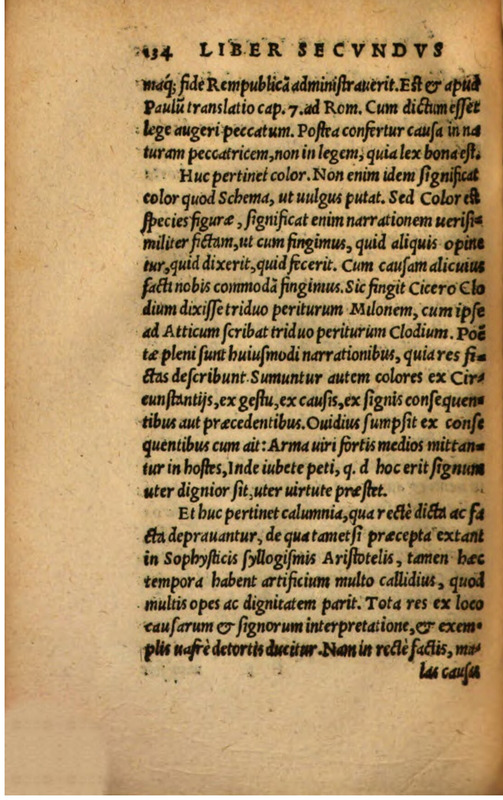 134 LIBER SECVNDVS
maq́; fide Rempublicã administrauerit. Est & apud
Paulũ translatio cap. 7. ad Rom. Cum dictum esset
lege augeri peccatum. Postea confertur causa in na
turam peccatricem, non in legem, quia lex bona est.
Huc pertinet color. Non enim idem significat
color quod Schema, ut uulgus putat. Sed Color est
species figuræ, significat enim narrationem uerisi=
militer fictam, ut cum fingimus, quid aliquis opine
tur, quid dixerit, quid fecerit. Cum causam alicuius
facti nobis commodã fingimus. Sic fingit Cicero Clo
dium dixisse triduo periturum Milonem, cum ipse
ad Atticum scribat triduo periturum Clodium. Poë
tæ pleni sunt huiusmodi narrationibus, quia res fi=
ctas describunt. Sumuntur autem colores ex Cir=
cunstantijs, ex gestu, ex causis, ex signis consequen=
tibus aut præcedentibus. Ouidius sumpsit ex conse
quentibus cum ait: Arma uiri fortis medios mittan=
tur in hostes, Inde iubete peti, q. d hoc erit signum
uter dignior sit, uter uirtute præstet.
Et huc pertinet calumnia, qua rectè dicta ac fa
cta deprauantur, de qua tametsi præcepta extant
in Sophysticis syllogismis Aristotelis, tamen hæc
tempora habent artificium multo callidius, quod
multis opes ac dignitatem parit. Tota res ex loco
causarum & signorum interpretatione, & exem=
plis uafrè detortis ducitur. Nam in rectè factis, ma=
las causas